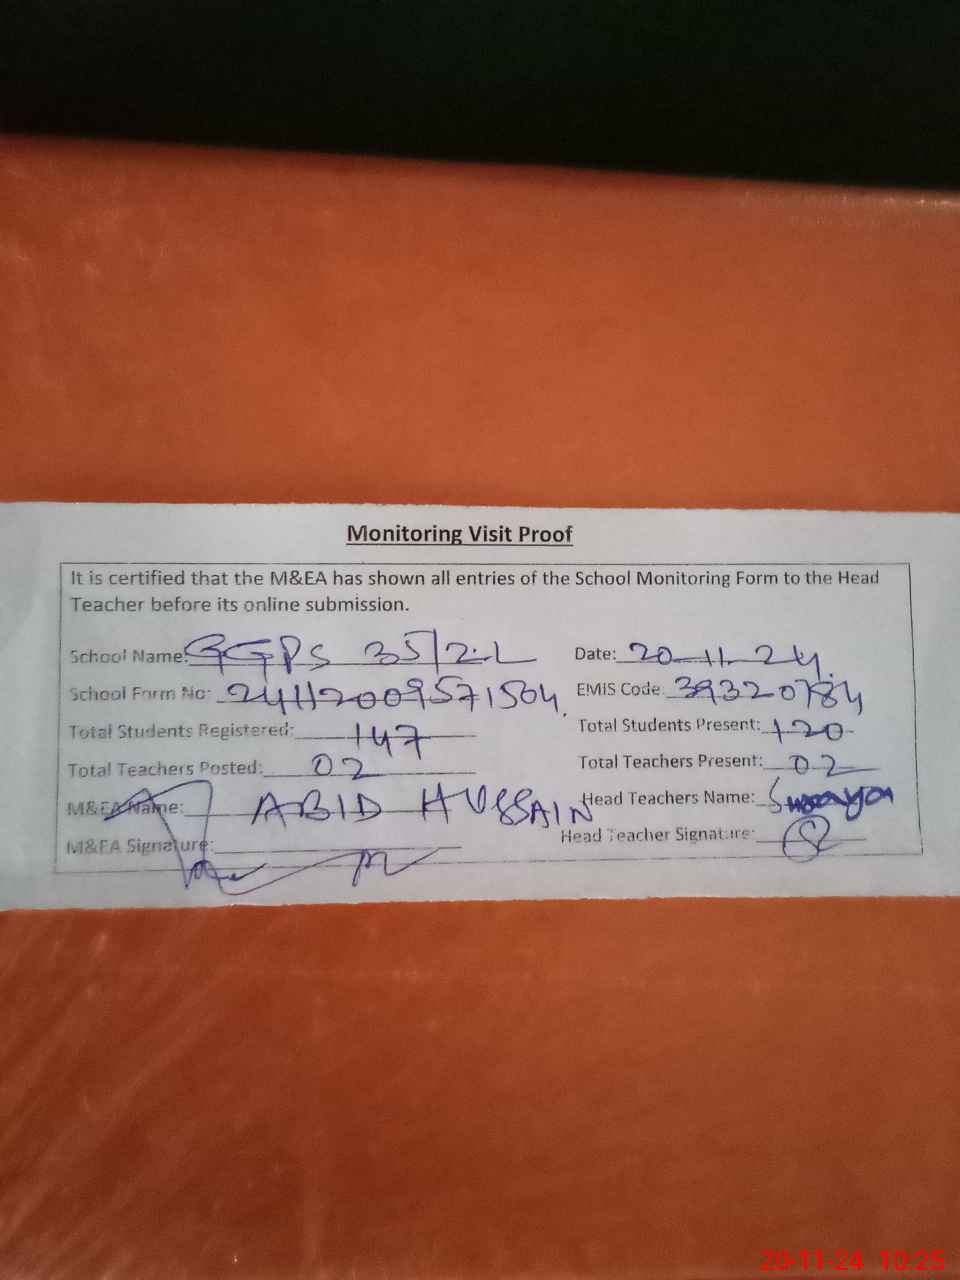 Monitoring Visit Proof
It is certified that the M&EA has shown all entries of the School Monitoring Form to the Head
Teacher before its online submission.
School Name: GGPS 35/2.L Date: 20-11-24
School Form No: 24112009571504 EMIS Code: 39320784
Total Students Registered: 147 Total Students Present: 120
Total Teachers Posted: 02 Total Teachers Present: 02
M&EA Name: ABID HUSSAIN Head Teachers Name:
M&EA Signature: Head Teacher Signature:
20-11-24 10:25